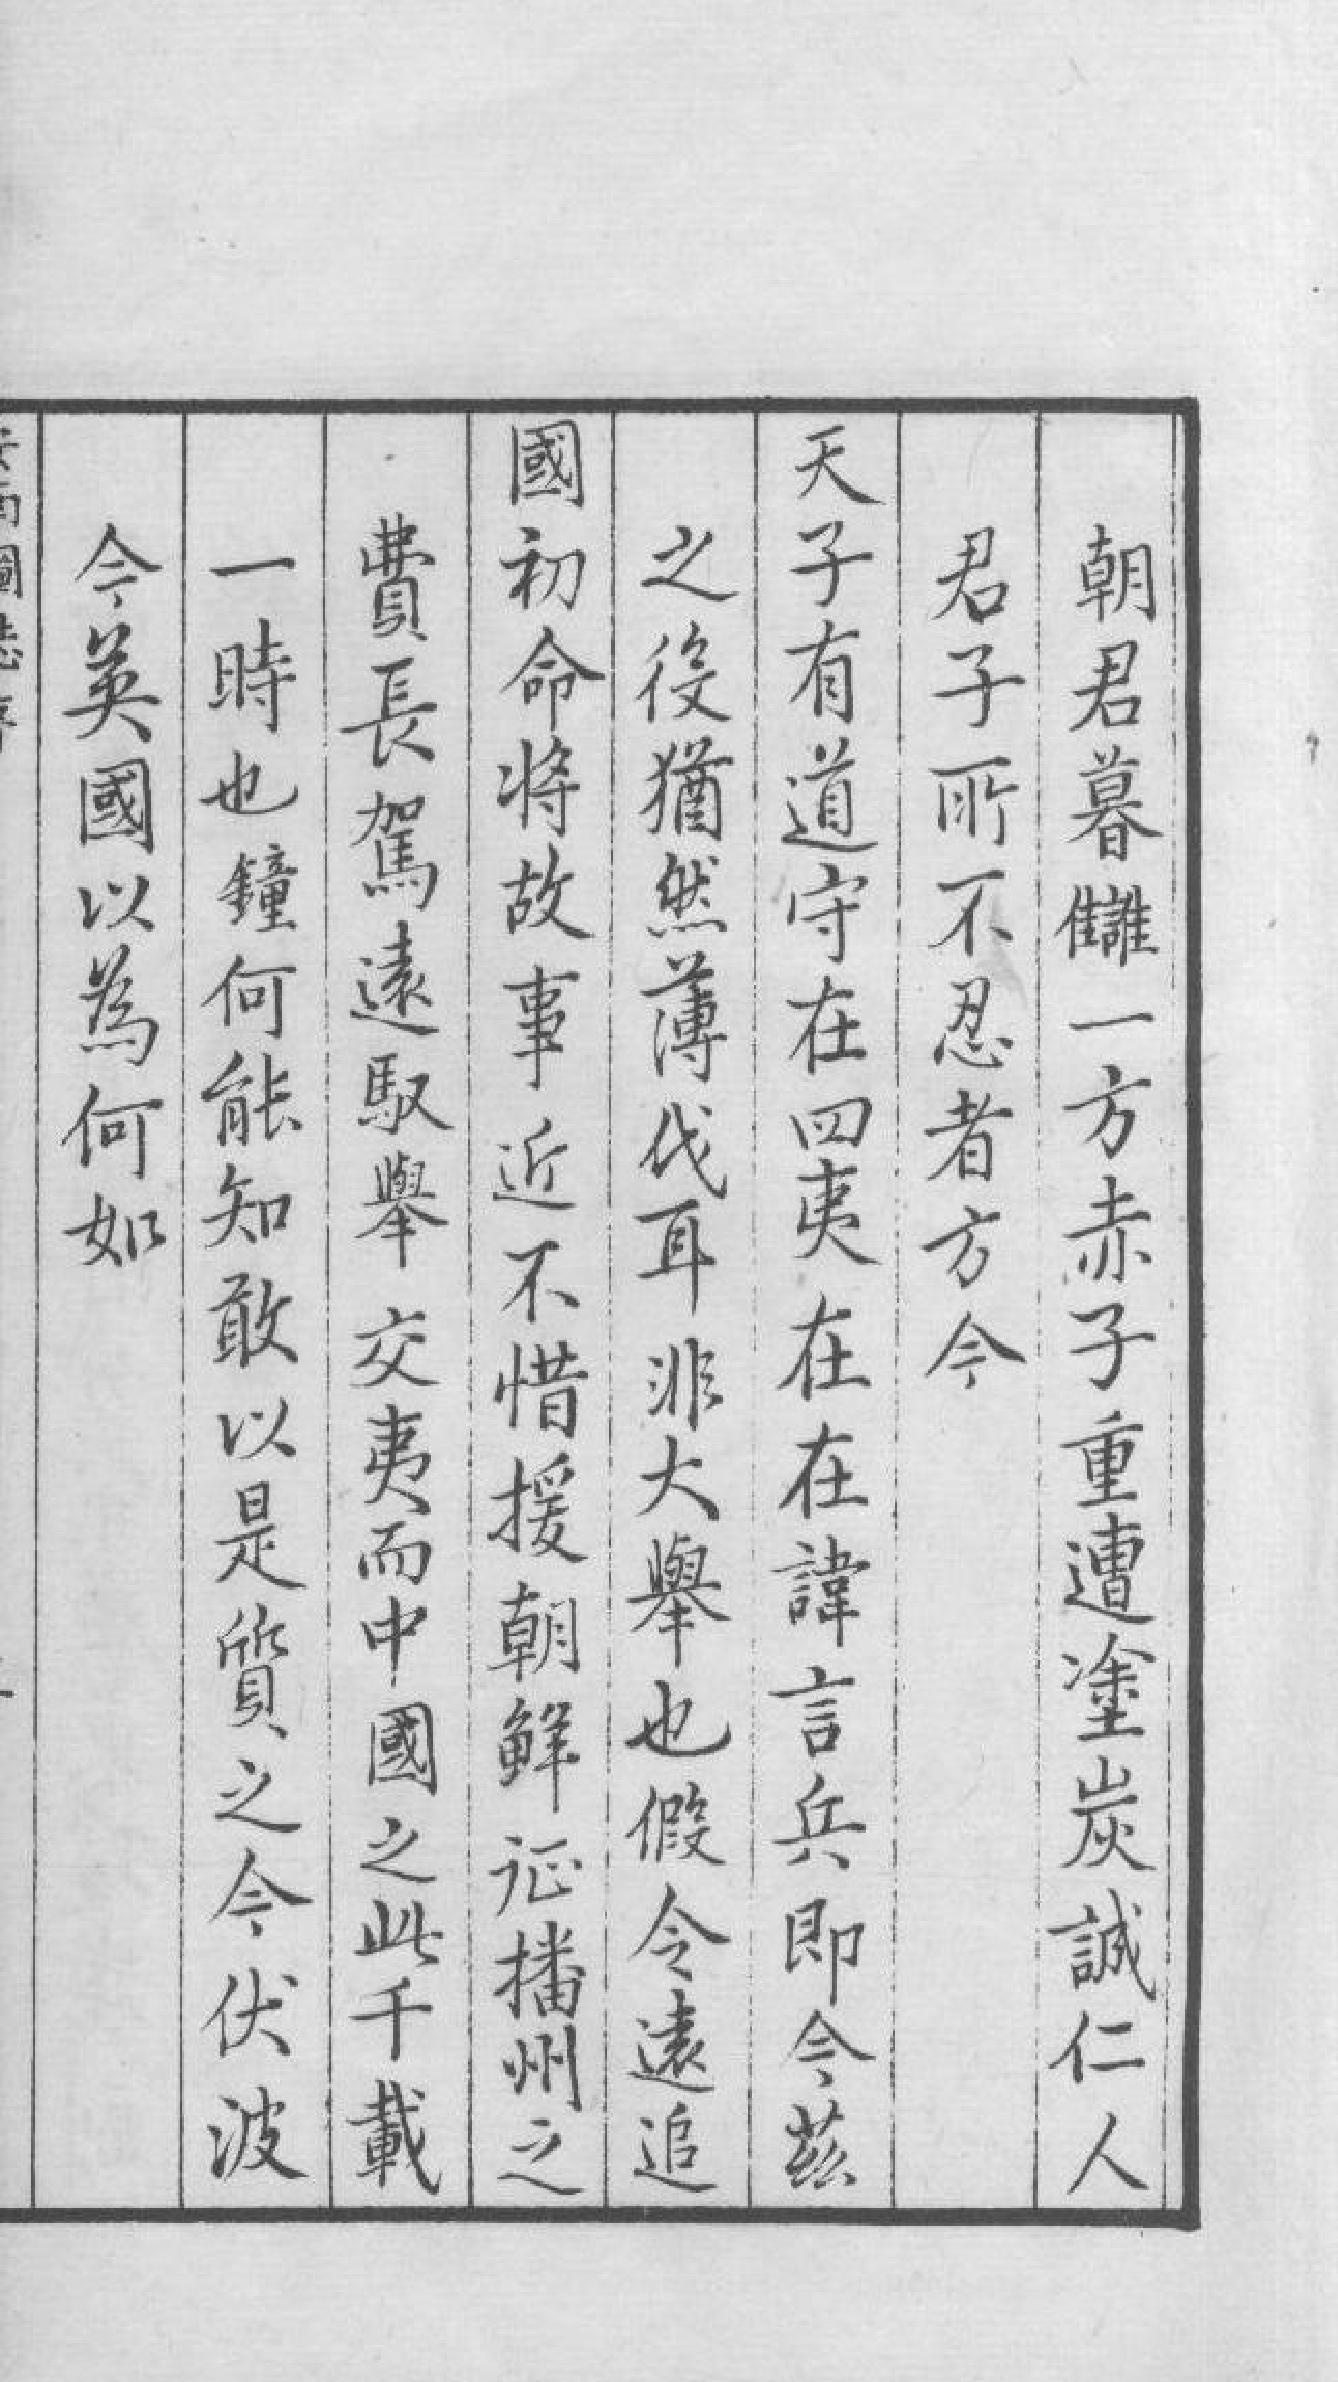 朝君暮讎一方赤子重遭塗炭誠仁人
君子所不忍者方今
天子有道守在四夷在在諱言兵即今茲
之役猶然薄伐耳非大舉也假令遠追
國初命將故事近不惜援朝鮮征播州之
費長駕遠馭舉交夷而中國之此千載
一時也鐘何能知敢以是質之今伏波
今英國以為何如